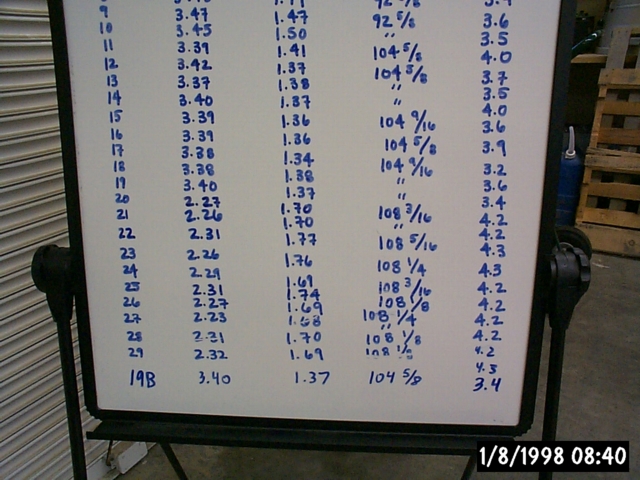 9 3.47 1.47 92 5/8 3.6
10 3.45 1.50 " 3.5
11 3.39 1.41 104 5/8 4.0
12 3.42 1.37 104 5/8 3.7
13 3.37 1.38 " 3.5
14 3.40 1.37 " 4.0
15 3.39 1.36 104 9/16 3.6
16 3.39 1.36 104 5/8 3.9
17 3.38 1.34 104 9/16 3.2
18 3.38 1.38 " 3.6
19 3.40 1.37 " 3.4
20 2.27 1.70 108 3/16 4.2
21 2.26 1.70 " 4.2
22 2.31 1.77 108 5/16 4.3
23 2.26 1.76 108 1/4 4.3
24 2.29 1.69 108 3/16 4.2
25 2.31 1.74 108 1/8 4.2
26 2.27 1.69 108 1/4 4.2
27 2.23 1.68 " 4.2
28 2.31 1.70 108 1/8 4.2
29 2.32 1.69 108 1/8 4.3
19B 3.40 1.37 104 5/8 3.4
1/8/1998 08:40